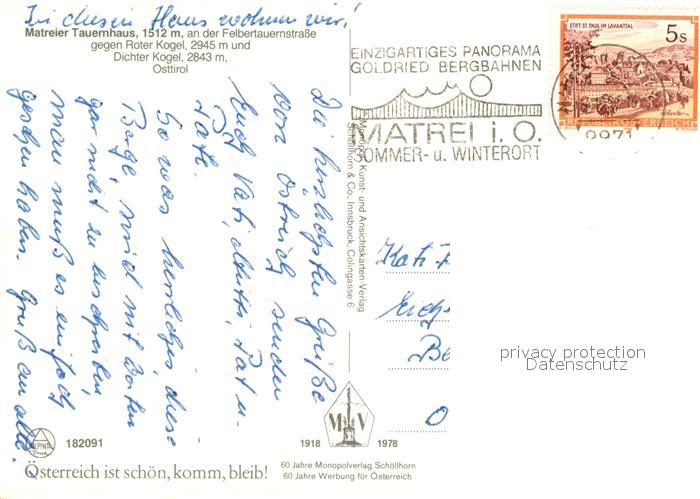 In diesem Haus wohnen wir!
Matreier Tauernhaus, 1512 m, an der Felbertauernstraße
gegen Roter Kogel, 2945 m und
Dichter Kogel, 2843 m,
Osttirol
EINZIGARTIGES PANORAMA
GOLDRIED BERGBAHNEN
MATREI i. O.
SOMMER- u. WINTERORT
STIFT ST. PAUL IM LAVANTTAL
5 S
REPUBLIK ÖSTERREICH
9971
Die herzlichsten Grüße
von Östreich senden
Euch Vati, Mutti, Pat u-
Pate.
So was herrliches, diese
Berge, wird mit Worten
gar nicht zu beschreiben,
man muß es einfach
gesehen haben. Gruß an alle.
Monopol Kunst- und Ansichtskarten-Verlag
Schöllhorn & Co., Innsbruck, Colingasse 6
Kati
Be
O
privacy protection
Datenschutz
ALPINA
182091
1918 MV 1978
Österreich ist schön, komm, bleib!
60 Jahre Monopolverlag Schöllhorn
60 Jahre Werbung für Österreich